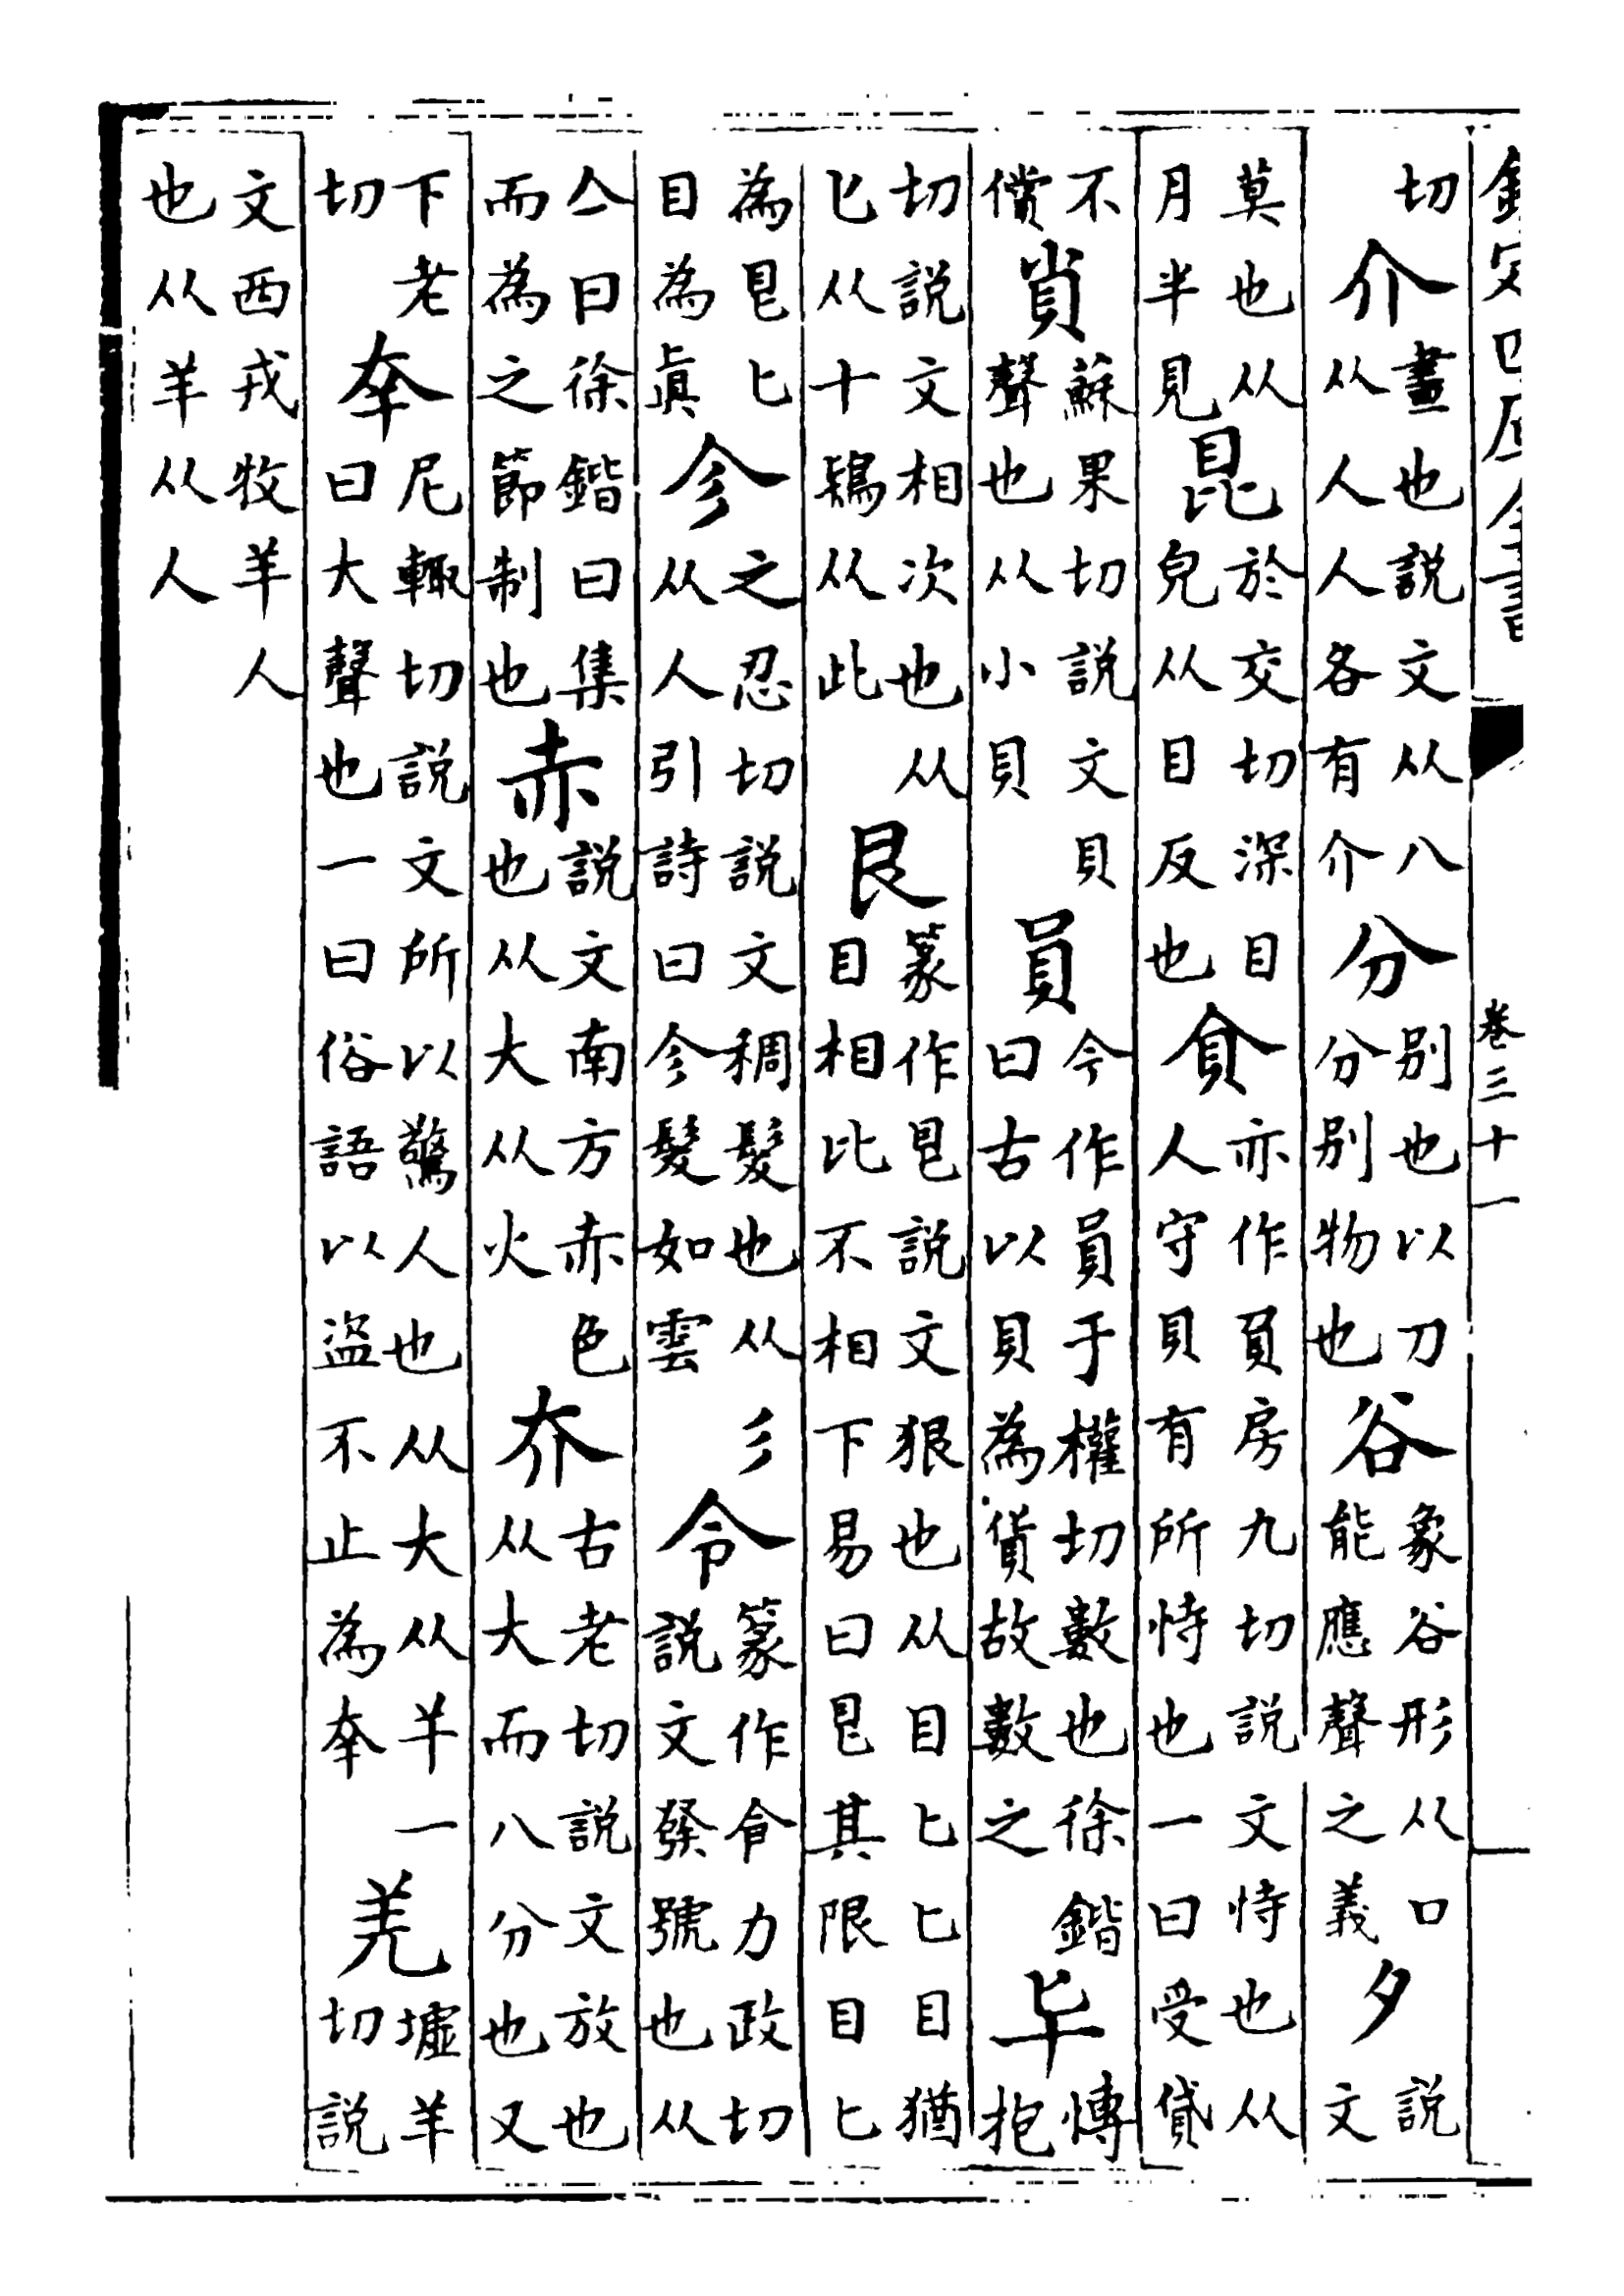 欽定四庫全書 卷三十一
切介畫也說文从八从人人各有介分别也以刀分别物也谷象谷形从口能應聲之義夕說文
莫也从月半見於交切深目皃从目反也𧴲亦作負房九切說文恃也从人守貝有所恃也一曰受貸
不償𧴪蘇果切說文貝聲也从小貝員今作員于權切數也徐鍇曰古以貝為貨故數之𠤏博抱
切說文相次也从匕从十鴇从此艮篆作𥃩說文狠也从目匕匕目猶目相比不相下易曰𥃩其限目匕
為𥃩匕目為眞㐱之忍切說文稠髮也从彡从人引詩曰㐱髮如雲令篆作力政切說文發號也从
亼曰徐鍇曰集而為之節制也赤說文南方赤色也从大从火夰古老切說文放也从大而八分也又
下老切㚔尼輙切說文所以驚人也从大从羊一曰大聲也一曰俗語以盜不止為㚔羌墟羊切說
文西戎牧羊人也从羊从人